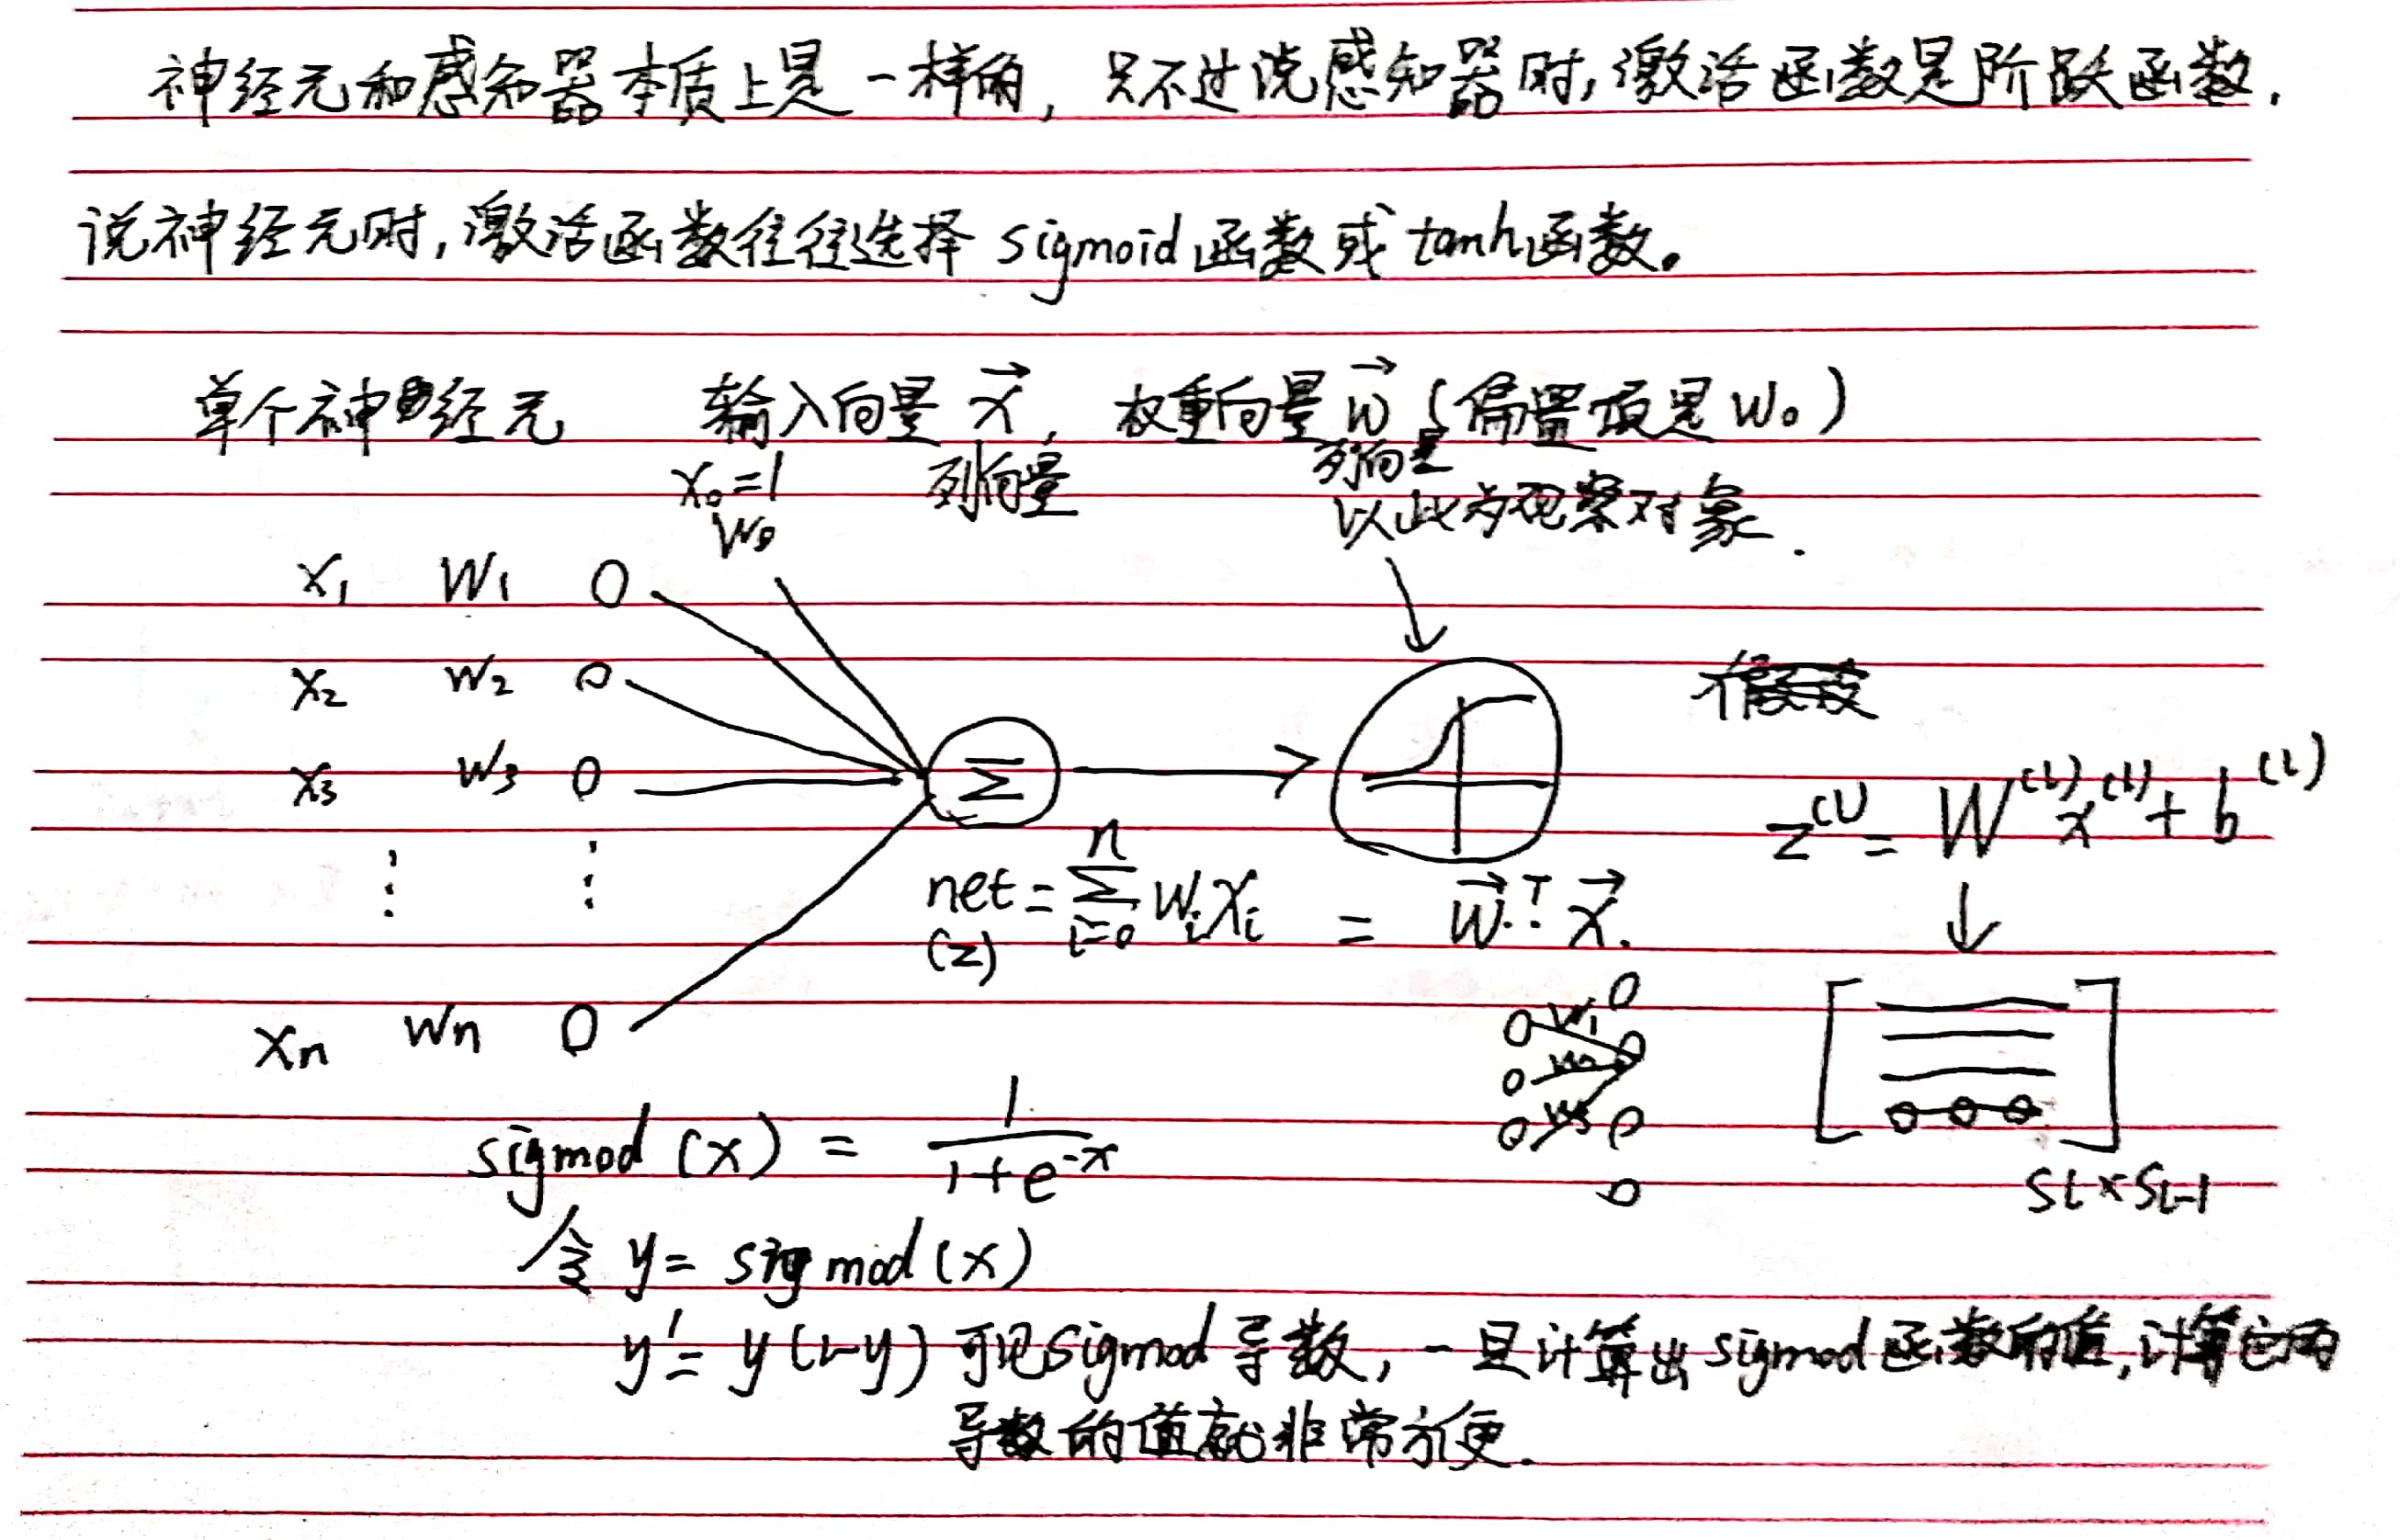 神经元和感知器本质上是一样的，只不过说感知器时，激活函数是阶跃函数，
说神经元时，激活函数往往选择 sigmoid 函数或 tanh函数。
单个神经元 输入向量 x⃗， 权重向量 w⃗ (偏置项是 W₀)
x₀=1 列向量 列向量
W₀ 以此为观察对象.
x₁ W₁
x₂ W₂
x₃ W₃ Σ
z⁽ˡ⁾ = W⁽ˡ⁾x⁽ˡ⁾ + b⁽ˡ⁾
⋮ ⋮
net = Σⁿᵢ₌₀ WᵢXᵢ = w⃗ᵀ·x⃗.
(z)
xₙ Wₙ
W₁
W₂
W₃
sigmod (x) = 1/(1+e⁻ˣ)
Sl×Sl-1
令 y = sigmod(x)
y' = y(1-y) 可见Sigmod导数，一旦计算出sigmod函数的值，计算它的
导数的值就非常方便.